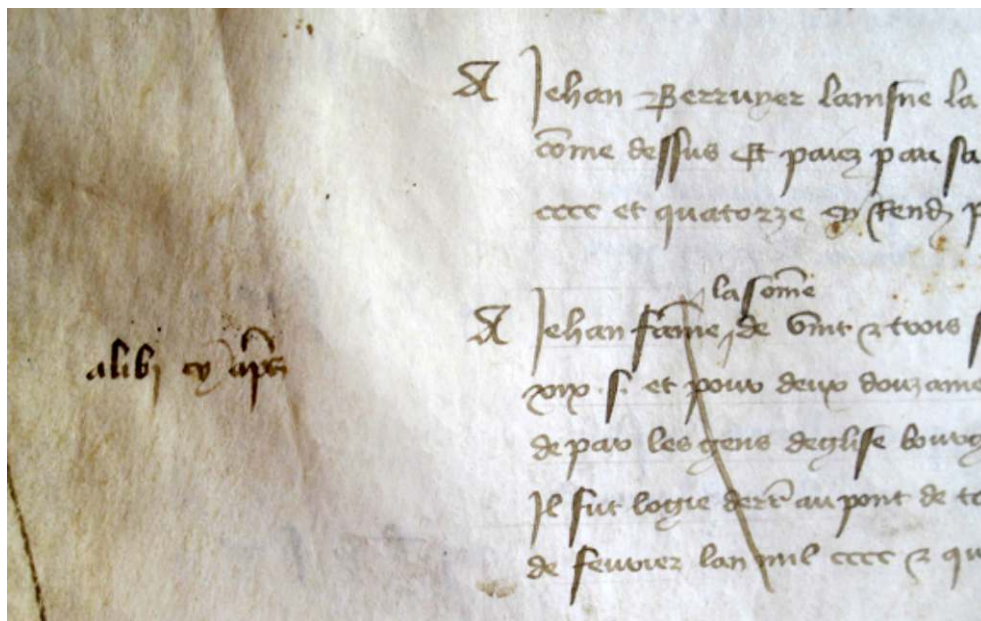 A Jehan Berruyer lainsne la
cōme dessus Et paiez par sa
cccc et quatorze cy Rend p
la som̄e
A Jehan fāme de vint & trois s
alibi cy ap̄s
xix s. et pour deux douzaine
de par les gens deglise bourg
Il fut logie derr au pont de to
de feuvrier lan mil cccc & qu